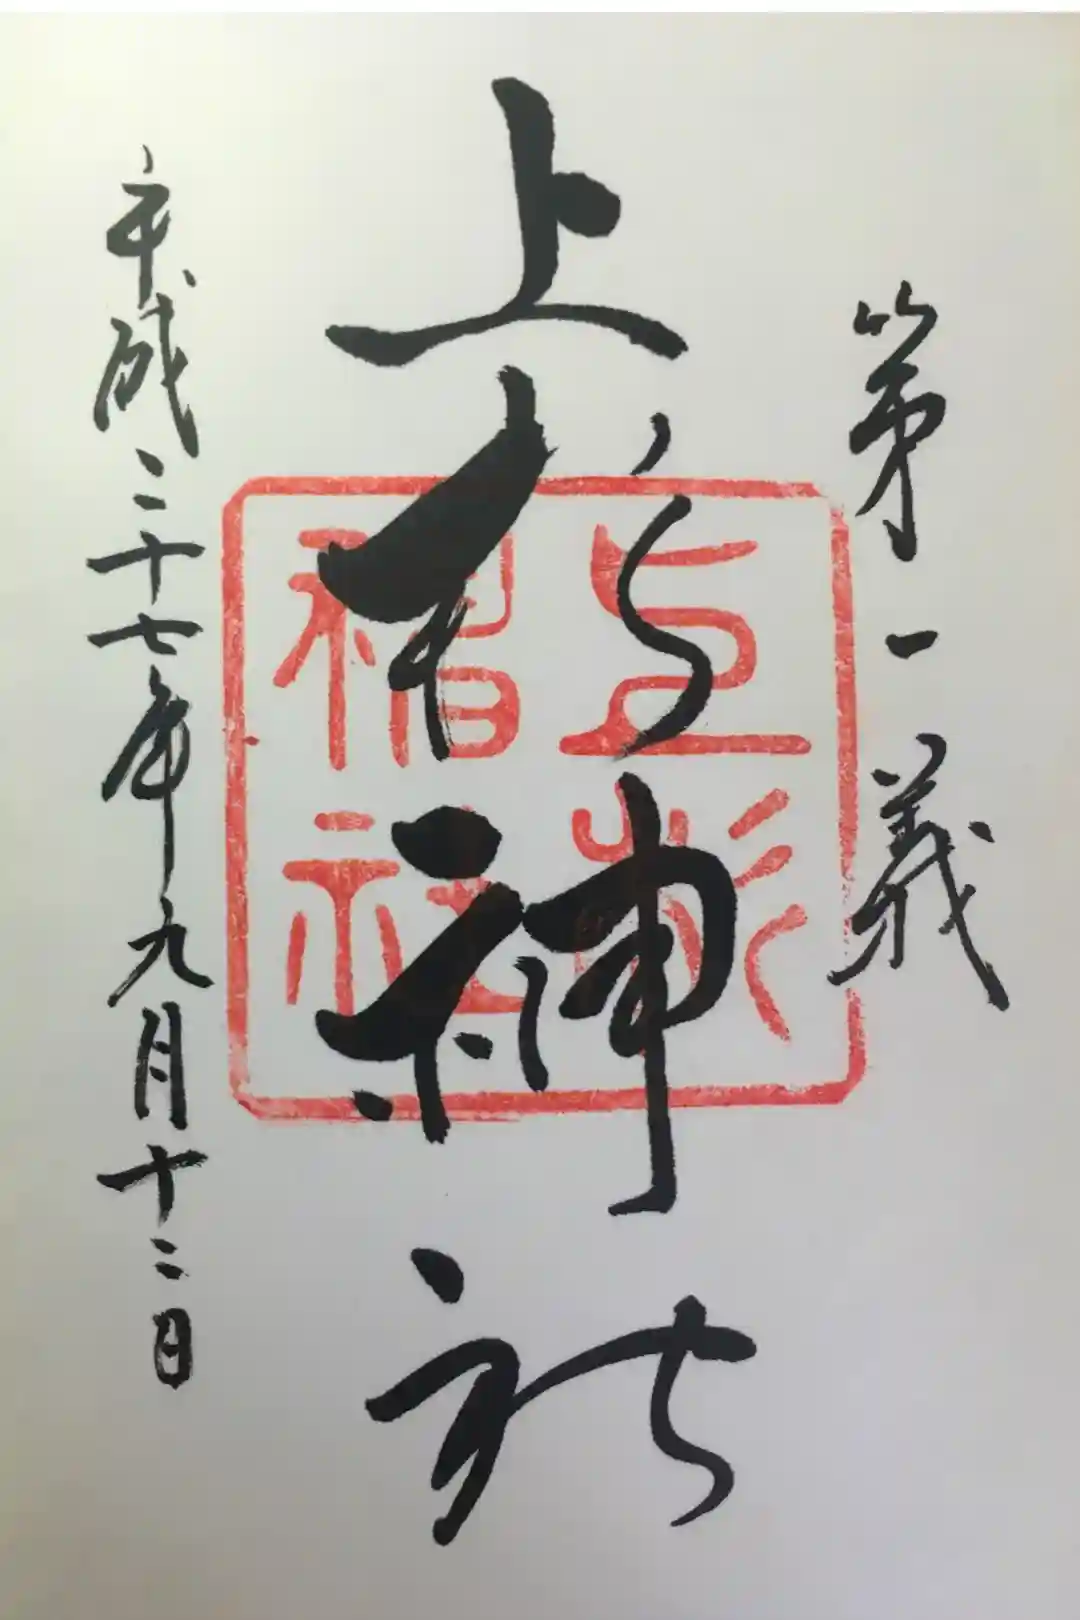 第一義
上杉神社
平成二十七年九月十二日
上杉
神社